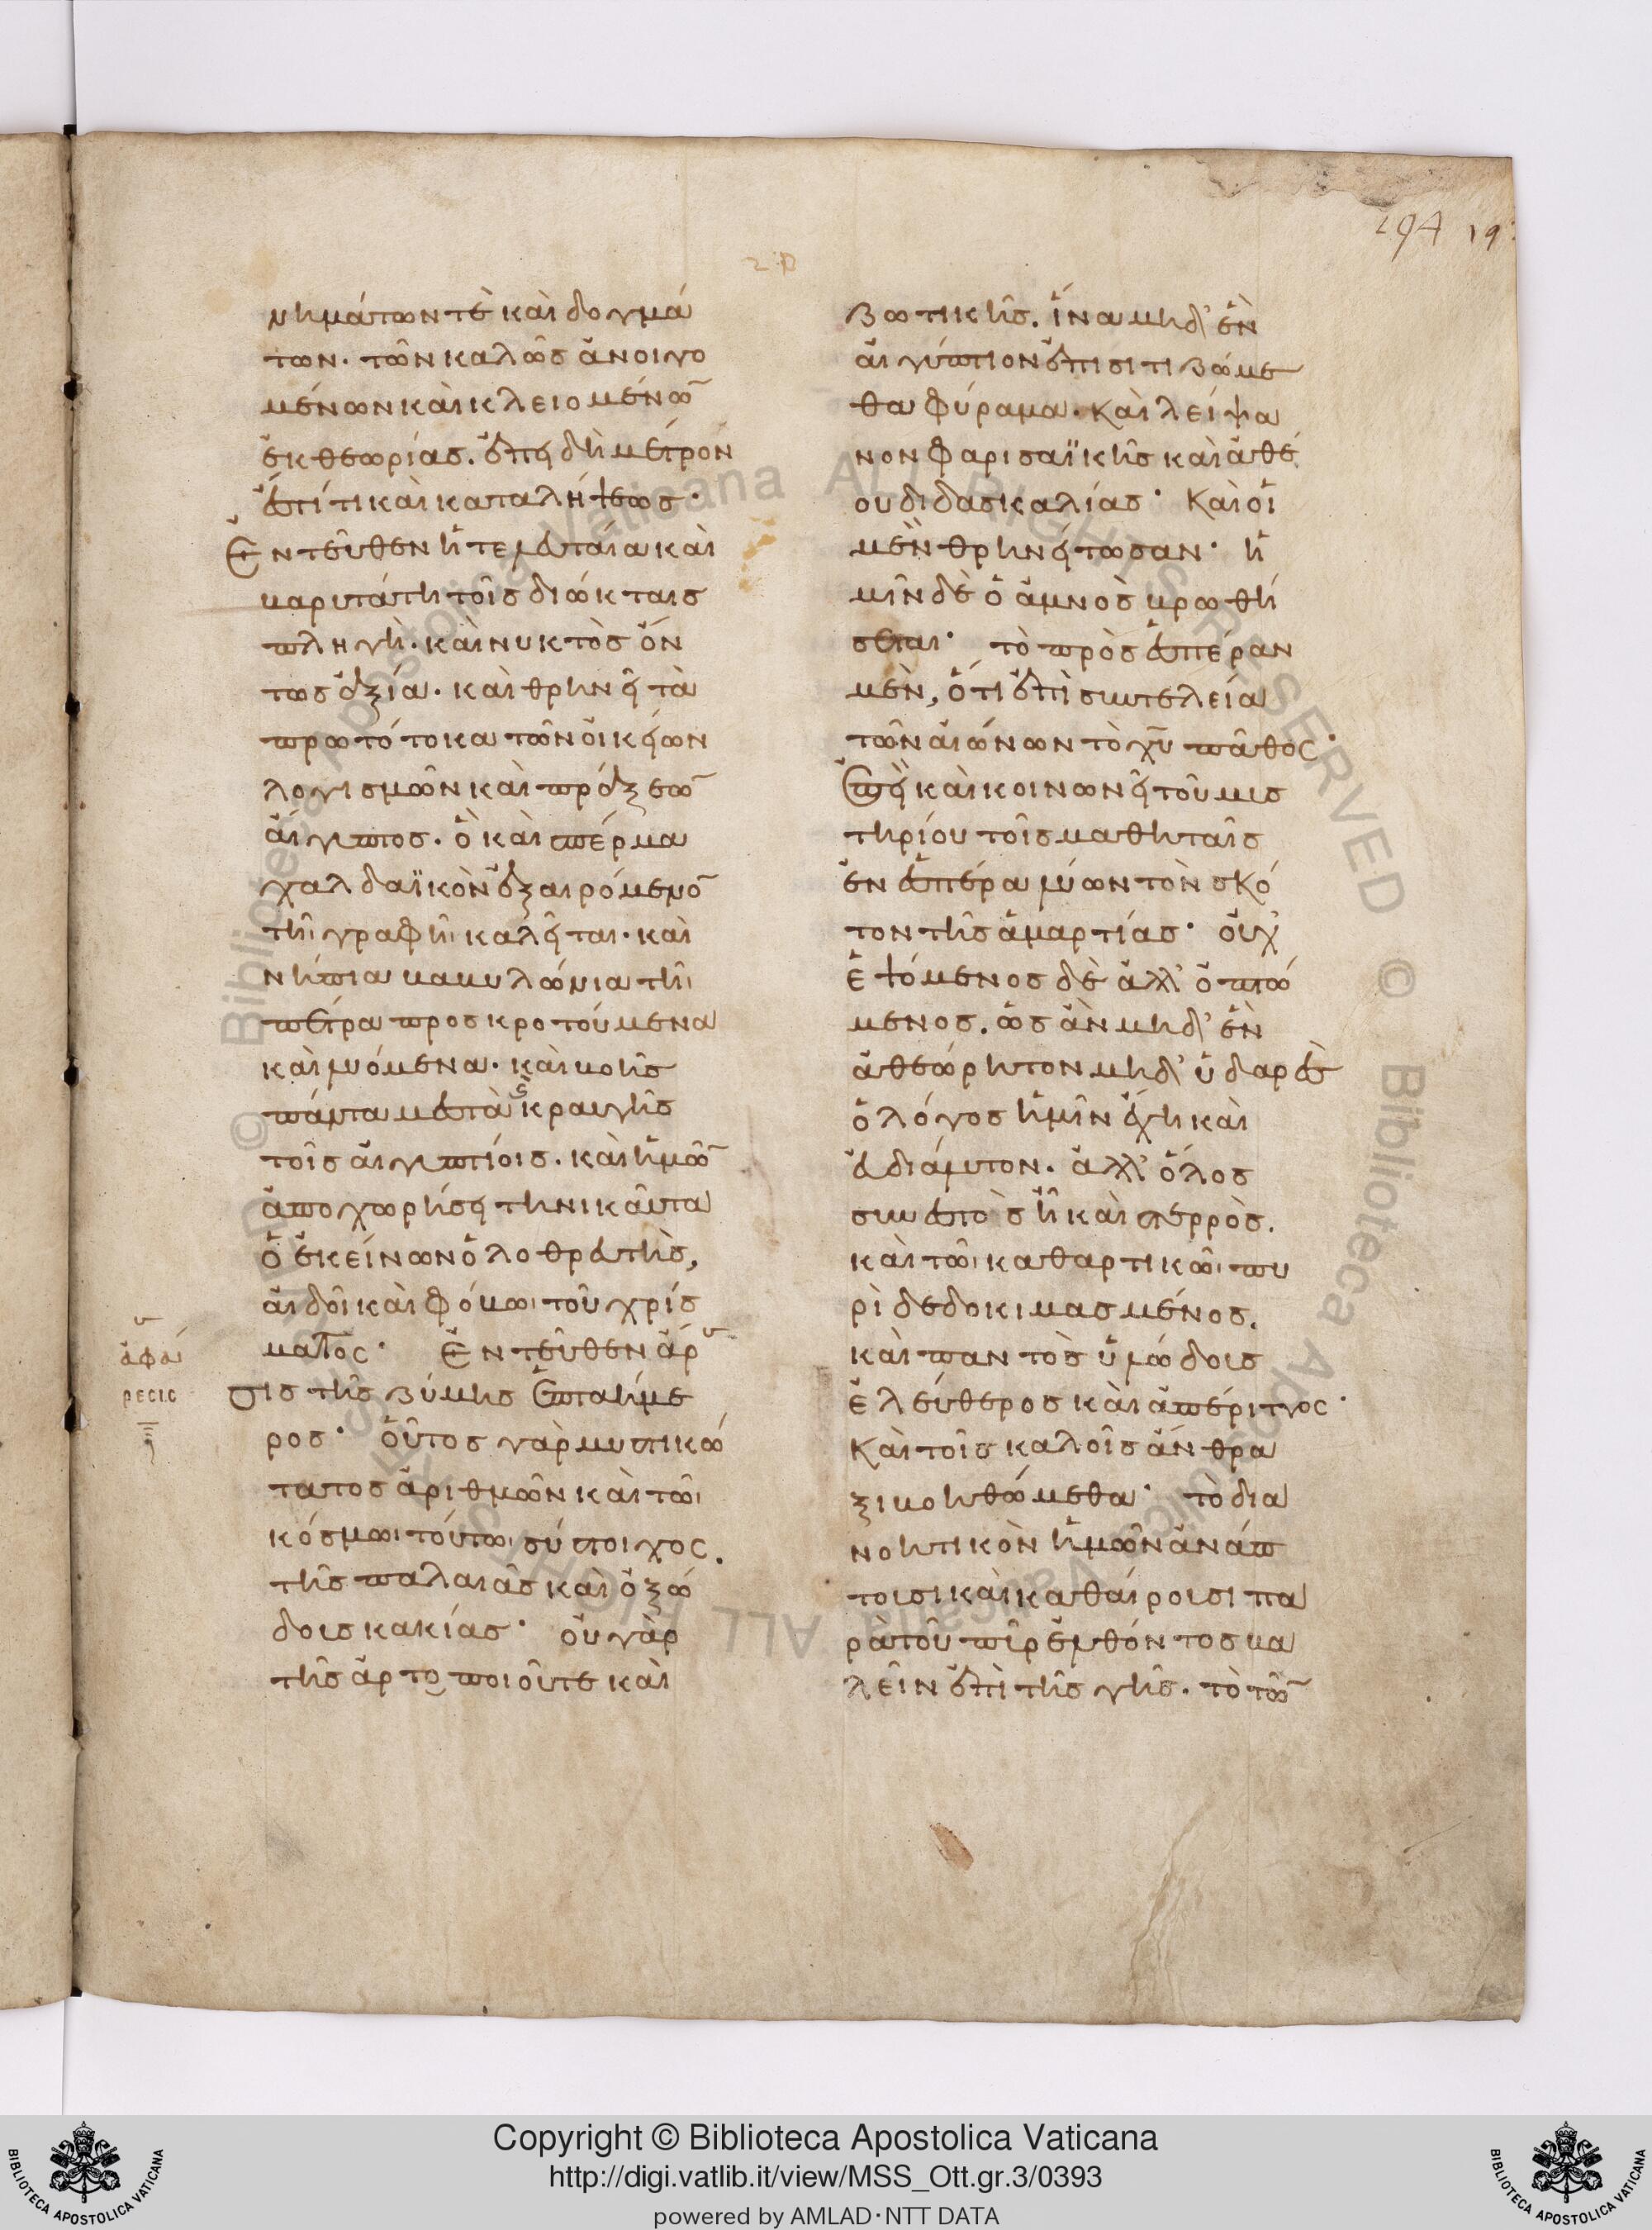 194 19
νημάτων τὲ καὶ δογμά
των. τῶν καλῶς ἀνοιγο
μένων καὶ κλειομένω̅
ἐκ θεωρίας. ἐπεὶ δὴ μέτρον
ἐστί τι καὶ καταλήψεως·
Ἐντεῦθεν ἥ τε μεταία καὶ
βαρυτάτη τοῖς διώκταις
πληγὴ. καὶ νυκτὸς ὄν
τως ἀξία. καὶ θρηνεῖ τὰ
πρωτότοκα τῶν οἰκείων
λογισμῶν καὶ πράξεω̅
αἴγυπτος. ὃ καὶ σπέρμα
χαλδαϊκὸν ἐξαιρόμενο̅
τῆι γραφῆι καλεῖται. καὶ
νήπια βαβυλώνια τῆι
πέτρα προσκροτούμενα
καὶ λυόμενα. καὶ βοῆς
πάντα μεστὰ ς κραυγῆς
τοῖς αἰγυπτίοις. καὶ ἡμῶ̅
ἀποχωρήσει τηνικαῦτα
ὁ ἐκείνων ὀλοθρευτὴς,
αἰδοῖ καὶ φόβωι τοῦ χρίσ
ματος· Ἐντεῦθεν ἄρ
σις τῆς ζύμης ἑπταήμε
ρος· οὗτος γὰρ μυστικώ
τατος ἀριθμῶν καὶ τῶι
κόσμωι τούτωι σύστοιχος.
τῆς παλαιᾶς καὶ ὀζώ
δους κακίας· οὐ γὰρ
τῆς ἀρτοποιοῦ τε καὶ
ἀφαί
ρεσις
ζωτικῆς. ἵνα μηδ' ἓν
αἰγύπτιον ἐπισιτιζώμε
θα φύραμα. καὶ λείψα
νον φαρισαϊκῆς καὶ ἀθέ
ου διδασκαλίας· Καὶ οἳ
μὲν θρηνείτωσαν· ἡ
μῖν δὲ ὁ ἀμνὸς βρωθή
σεται· τὸ πρὸς ἑσπέραν
μὲν, ὅτι ἐπὶ συντελεία
τῶν αἰώνων τὸ χ̅υ̅ πάθος·
Ἐπεὶ καὶ κοινωνεῖ τοῦ μυσ
τηρίου τοῖς μαθηταῖς
ἐν ἑσπέρα λύων τὸν σκό
τον τῆς ἁμαρτίας· οὐχ'
ἑψόμενος δὲ ἀλλ' ὀπτώ
μενος. ὡς ἂν μηδ' ἓν
ἀθεώρητον μηδ' ὑδαρὲς
ὁ λόγος ἡμῖν ἔχη καὶ
εὐδιάλυτον. ἀλλ' ὅλος
συνεστὸς ἦ καὶ στερρὸς.
καὶ τῶι καθαρτικῶι πυ
ρὶ δεδοκιμασμένος.
καὶ παντὸς ὑλώδους
ἐλεύθερος καὶ ἀπέριττος·
Καὶ τοῖς καλοῖς ἄνθρα
ξι βοηθώμεθα· τὸ δια
νοητικὸν ἡμῶν ἀνάπ
τουσι καὶ καθαίρουσι πα
ρὰ τοῦ πῦρ ἐλθόντος βα
λεῖν ἐπὶ τῆς γῆς. τὸ τῶ̅
© Biblioteca Apostolica Vaticana ALL RIGHTS RESERVED
Copyright © Biblioteca Apostolica Vaticana
http://digi.vatlib.it/view/MSS_Ott.gr.3/0393
powered by AMLAD·NTT DATA
BIBLIOTECA APOSTOLICA VATICANA
BIBLIOTECA APOSTOLICA VATICANA